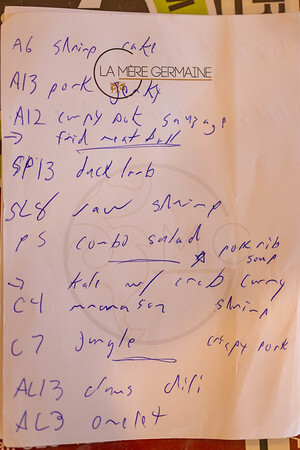 A6 shrimp cake
LA MÈRE GERMAINE
A13 pork jerky
A12 crispy pork sausage
→ fried meat ball
SP13 duck larb
SL8 raw shrimp
P5 combo salad
pork rib
soup
→ kale w/ crab curry
C4 shrimp
C7 jungle crispy pork
AL13
AL3 omelet